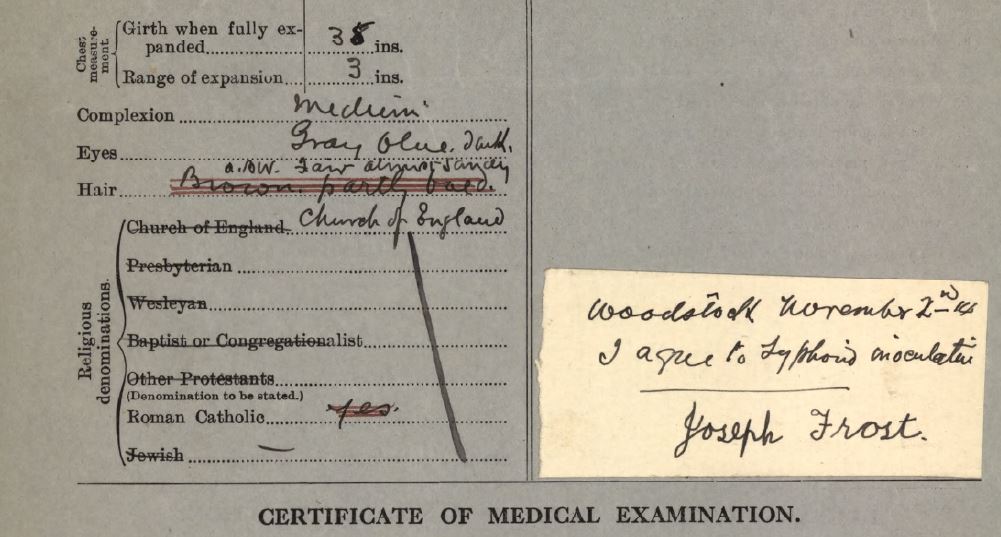 Chest measure-ment.
Girth when fully ex-
panded.................. 38 ins.
Range of expansion.... 3 ins.
Complexion .................. Medium
Eyes.................. Gray blue. Dark.
Fair almost sandy
Hair.................. Brown. partly bald.
Religious denominations.
Church of England. Church of England
Presbyterian ..................
Wesleyan..................
Baptist or Congregationalist..................
Other Protestants..................
(Denomination to be stated.)
Roman Catholic...... yes.
Jewish ..................
Woodstock November 2nd
I agree to Typhoid inoculation
Joseph Frost.
CERTIFICATE OF MEDICAL EXAMINATION.